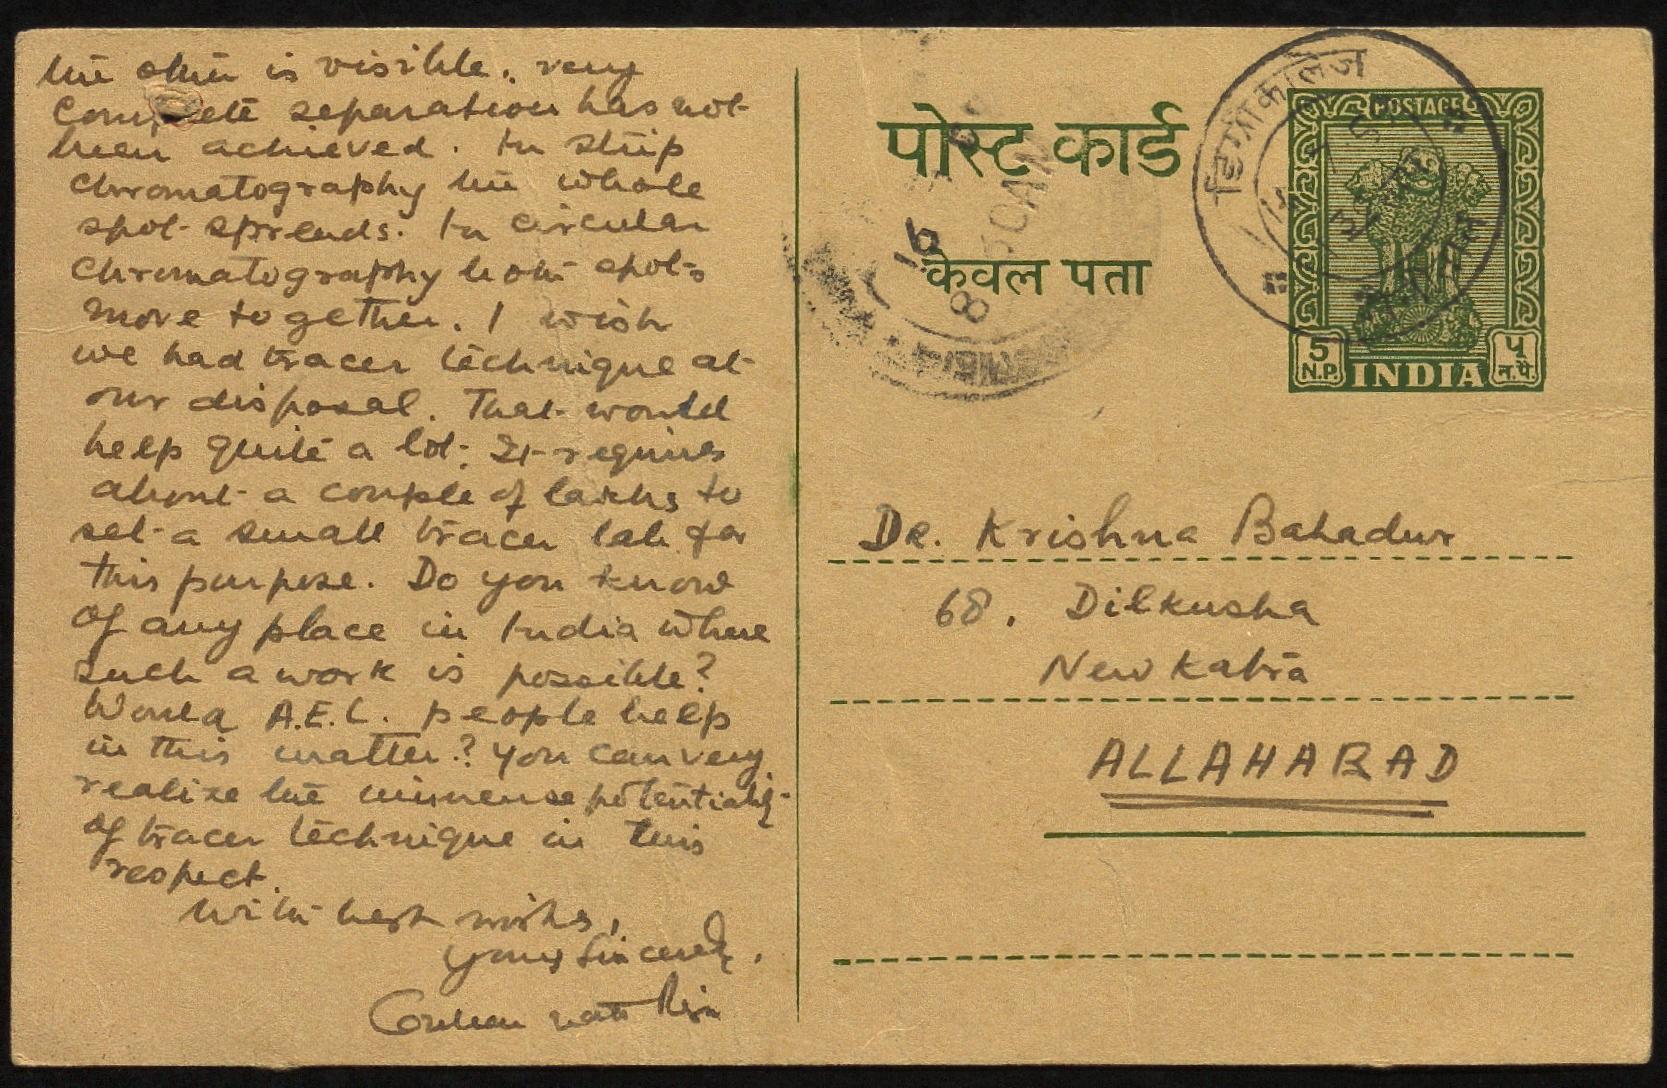 the other is visible. very
complete separation has not
been achieved. In strip
chromatography the whole
spot spreads. In circular
chromatography both spots
move together. I wish
we had tracer technique at
our disposal. That would
help quite a lot. It requires
about a couple of lakhs to
set a small tracer lab for
this purpose. Do you know
of any place in India where
such a work is possible?
Would A.E.C. people help
in this matter? You can very
realize the immense potentiality
of tracer technique in this
respect.
With best wishes,
Yours Sincerely,
पोस्ट कार्ड
केवल पता
8 50 AM
डिग्री कालेज
POSTAGE
5
N.P.
INDIA
५
न.पै.
Dr. Krishna Bahadur
68, Dilkusha
New Katra
ALLAHABAD